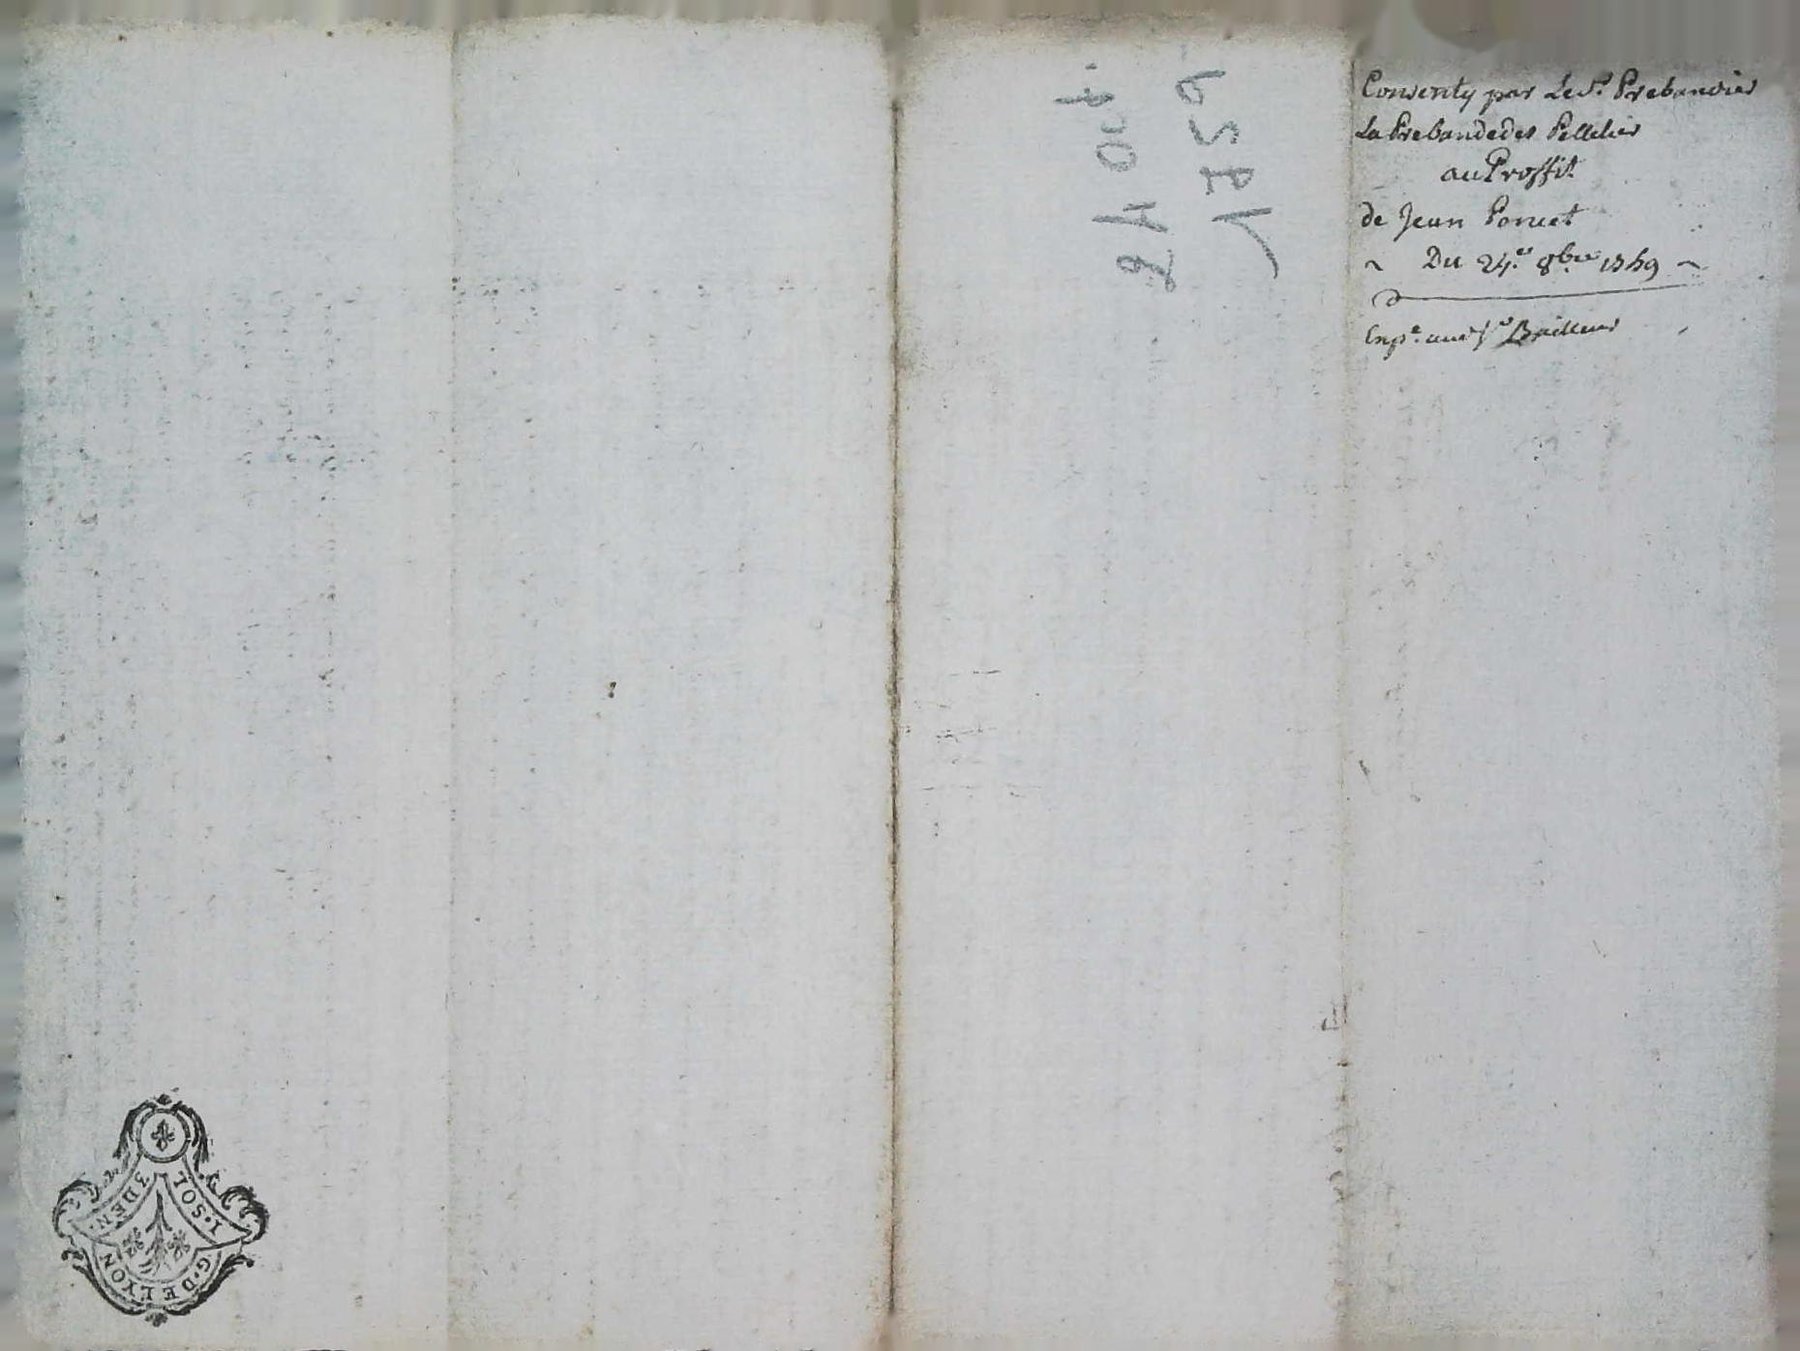 Consenty par Le Sr. Prebandier
La Prebande des Pelletier
au Proffit
de Jean Poncet
~ Du 24e. 8bre 1759 ~
Exp.e
24 oct.
1759
I·SOL
3 DEN·
G·DE LYON